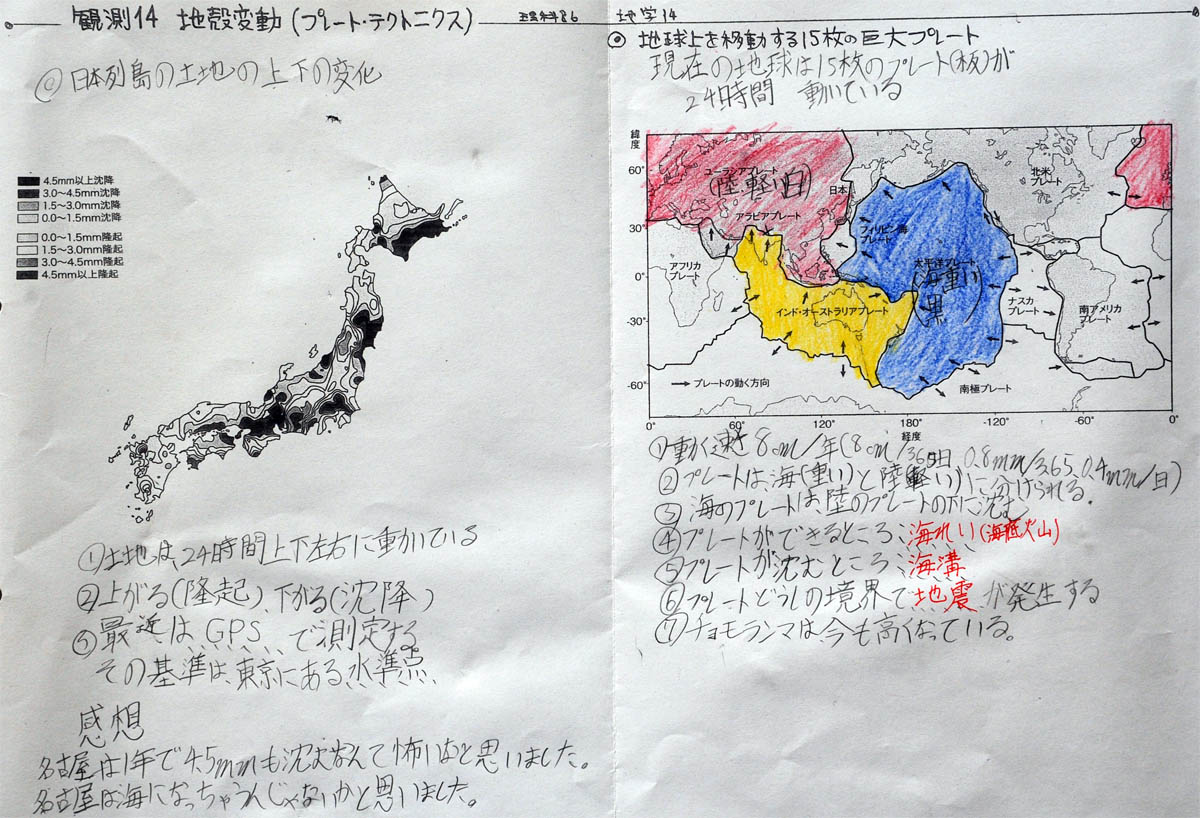 観測14 地殻変動(プレート・テクトニクス)
理科86
地学14
◎日本列島の土地の上下の変化
4.5mm以上沈降
3.0〜4.5mm沈降
1.5〜3.0mm沈降
0.0〜1.5mm沈降
0.0〜1.5mm隆起
1.5〜3.0mm隆起
3.0〜4.5mm隆起
4.5mm以上隆起
①土地は、24時間上下左右に動いている
②上がる(隆起)、下がる(沈降)
③最近は、GPS、で測定する。
その基準は、東京にある、水準点、
感想
名古屋は1年で4.5mmも沈むなんて怖いなと思いました。
名古屋は海になっちゃうんじゃないかと思いました。
◎地球上を移動する15枚の巨大プレート
現在の地球は15枚のプレート(板)が
24時間 動いている
緯度
60°
30°
0°
-30°
-60°
ユーラシアプレート
(陸軽い日)
日本
アラビアプレート
フィリピン海プレート
北米プレート
アフリカプレート
太平洋プレート
(海重い黒)
インド・オーストラリアプレート
ナスカプレート
南アメリカプレート
→プレートの動く方向
南極プレート
0° 60° 120° 180° -120° -60° 0°
経度
①動く速さ8cm/年(8cm/365日、0.8mm/3.65、0.4mm/日)
②プレートは、海(重い)と陸(軽い)に分けられる。
③海のプレートは陸のプレートの下に沈む
④プレートができるところ、海れい(海底火山)
⑤プレートが沈むところ、海溝
⑥プレートどうしの境界で、地震、が発生する
⑦チョモランマは、今も高くなっている。